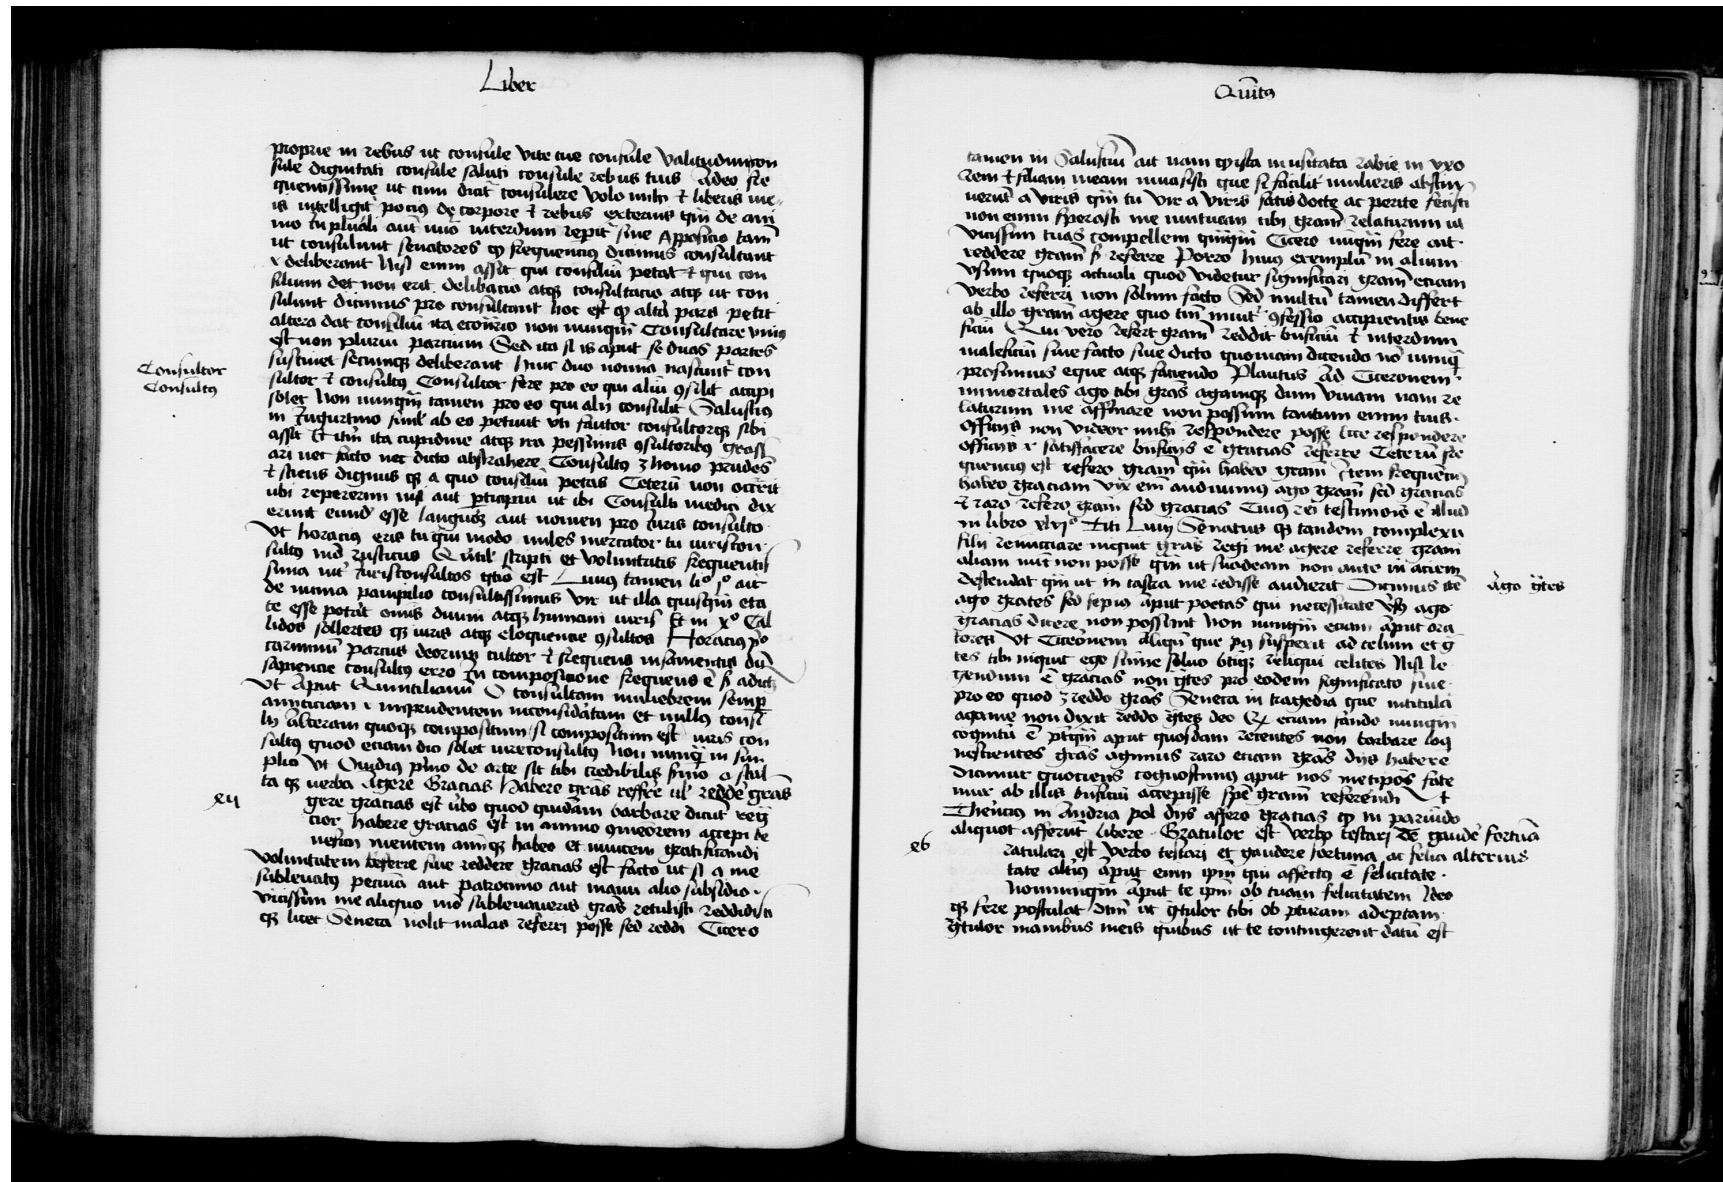 Liber
proprie in rebus ut consule vite tue consule valitudini con
sule dignitati consule saluti consule rebus tuis Adeo fre
quentissime ut cum dicit consulere volo mihi et liberis me
is intelligit pocius de corpore et rebus externis qm de ani
mo In plurali aut nuo interdum reperit sine Appositio tam
ut consulunt senatores qp frequencius dicimus consultant
et deliberant Nisi enim assit qui consiliu petat et qui con
silium det non erit deliberacio atqz consultacio atqz ut con
sulunt dicimus pro consultant hoc est qp altera pars petit
altera dat consiliu ita econtrario non nunqm Consultare unius
est non pluriu parcium Sed ita si is aput se duas partes
sustinet secumqz deliberant Hinc duo nomina nascunt con
Consultor
Consultus
sultor et consultus Consultor fere pro eo qui aliu consulit accipi
solet Non nunqm tamen pro eo qui alii consulit Salustius
in Jugurtino simul ab eo petiuit uti fautor consultorqz sibi
assit Et item ita cupidine atqz ira pessimis consultoribus grass
ari nec facto nec dicto abstrahere Consultus homo prudens
et sciens dignus qz a quo consiliu petas Ceteru non occurrit
ubi repererim nisi aut participiu ut ibi Consulti medici dix
erunt eund esse languorem aut nomen pro Juris consulto
Ut horacius eris tu qui modo miles mercator tu iuriscon
sultus ind rusticus Quintil scripti et voluntatis frequentis
sima int Jurisconsultos qtio est Liuius tamen lio io ait
de numa pampilio consultissimus vir ut illa quisqm eta
te esse poterat omnis diuini atqz humani iuris Et in xo Cal
lidos sollertes qz iuris atqz eloquencie consultos Horacius po
carminu parcus deorum cultor et frequens insanientis du
sapiencie consultus erro In composicione frequens e adict
Ut Aput Quintilianu O consultam muliebrem semp
amiciciam et inprudentem inconsideratam et nullius consi
lij Alteram quoqz compositum si compositum est iuris con
sultus quod eciam dici solet iureconsultus Non nunqm in sim
plio Ut Ouidius primo de arte sit tibi credibilis sermo
ta qz uerba Agere Gracias Habere gras referre ul reddere gras
xij
gere gracias est ubo quod quidam barbare dicut regr
cior habere gracias est in animo memorem accepi be
neficij mentem animqz habeo et inuicem gratificandi
voluntatem Referre siue reddere gracias est facto ut si a me
subleuatus pecunia aut patrocinio aut in quu alio subsidio
vicissim me aliquo mo subleuaueris gras retulisti reddidisti
qz licet Seneca nolit malas referri posse sed reddi Cicero
Quintus
tamen in Salustiu ait nam qp ista inusitata rabie in vxo
rem et filiam meam inuasisti que si facilius mulieris abstin
uerut a viris qm tu vir a viris satis docte ac perite fecisti
non enim sperasti me mutuam tibi gram relaturum ut
vicissim tuas compellem qmqm Cicero nuqm fere ait
reddere gram s referre Porro huius exemplu in alium
usum quoqz actuali quod videtur significari gram eciam
verbo referri non solum facto Sed multu tamen differt
ab illo gram agere quo tm inuit confessio accipientis bene
ficiu Qui vero refert gram reddit bnficiu et interdum
maleficiu siue facto siue dicto quoniam dicendo no nunqm
prosumus eque atqz faciendo Plancus Ad Ciceronem
immortales ago tibi gras agamqz dum viuam nam re
laturum me affirmare non possum tantum enim tuis
officijs non videor mihi respondere posse licet respondere
officijs et satisfacere bnficijs e gracias referre Ceteru fre
quencius est refero gram qm habeo gram Item frequencius
habeo graciam vix em audiuimus ago gram sed gracias
et raro refero gram sed gracias Cuius rei testimonio e illud
in libro xlvio Titi Liuij Senatus qz tandem complexu
filij renunciare inquit gras regi me agere referre gram
aliam nuc non posse qm ut suadeam non ante in aciem
descendat qm ut in castra me redisse audierit Dicimus ite
Ago grtes
ago grates sed sepius aput poetas qui necessitate versus ago
gracias dicere non possunt Non nunqm eciam aput ora
tores Ut Ciceronem aliqm que suspexit ad celum et g
tes tibi inquit ego summe soluo vtiqz reliqui celites Nisi le
gendum e gracias non grtes pro eodem significato siue
pro eo quod reddo gras Seneca in tragedia que intitula
agame non dixit reddo grtes deo eciam fando nunqm
cognitu e ptqm aput quosdam recentes non barbare loq
nescientes gras agimus raro eciam gras dijs habere
dicimur quociens cognoscimus aput nos metipos fate
mur ab illis bnficiu accepisse spe gram referendi Ut
Therencius in Andria pol dijs affero gracias qp in pariundo
aliquot afferut libere Gratulor est verbo testari de gaude fortuna
xb
ratulari est verbo testari et gaudere fortuna ac felici alterius
tate altius Aput enim ipm qui affectus e felicitate
Nonnunqm Aput te ipm ob tuam felicitatem Ideo
qz fere postulat dtm ut gtulor tibi ob pturam adeptam
gtulor manibus meis quibus ut te contingerent datu est